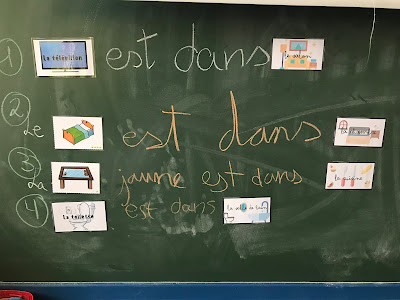 1 La télévision est dans le salon
2
Le est dans
3
La jaune est dans la cuisine
4 La toilette est dans la salle de bain